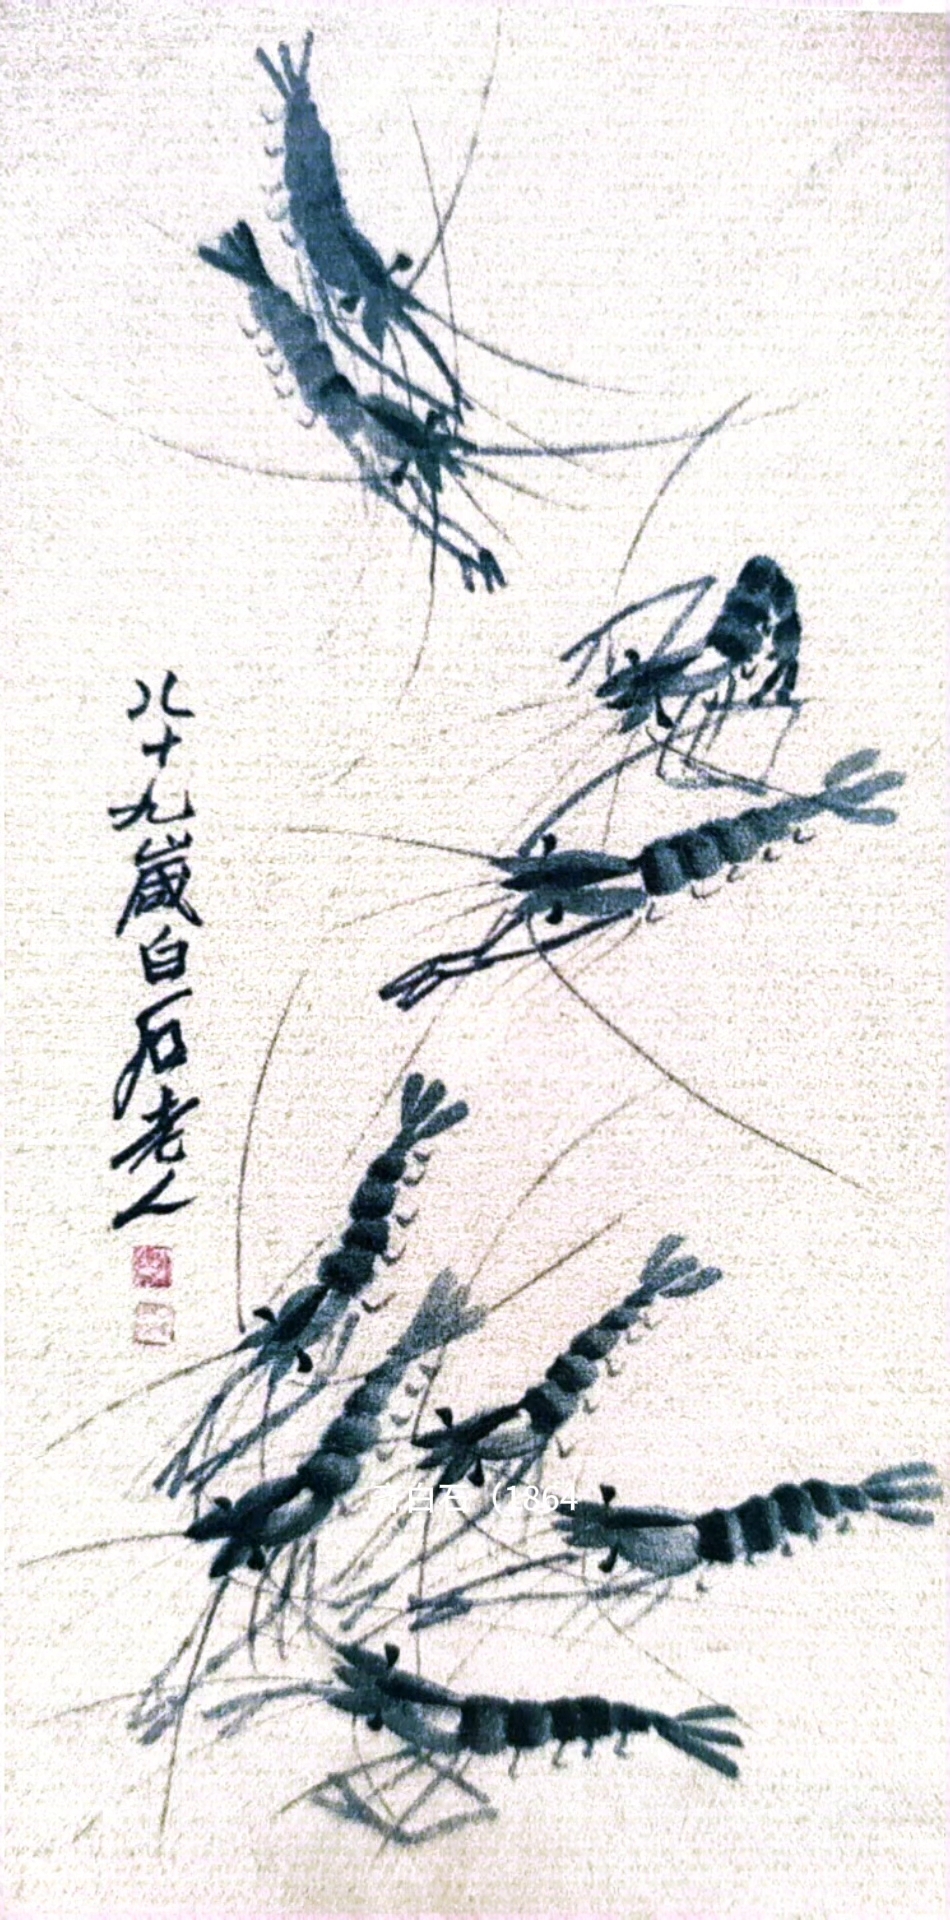 八十九歲白石老人
齐白石（1864